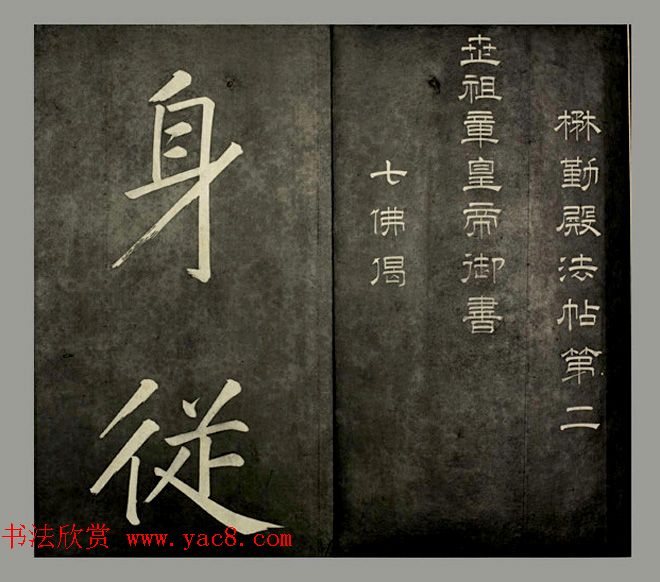 楙勤殿法帖第二
世祖章皇帝御書
七佛偈
身從
书法欣赏 www.yac8.com